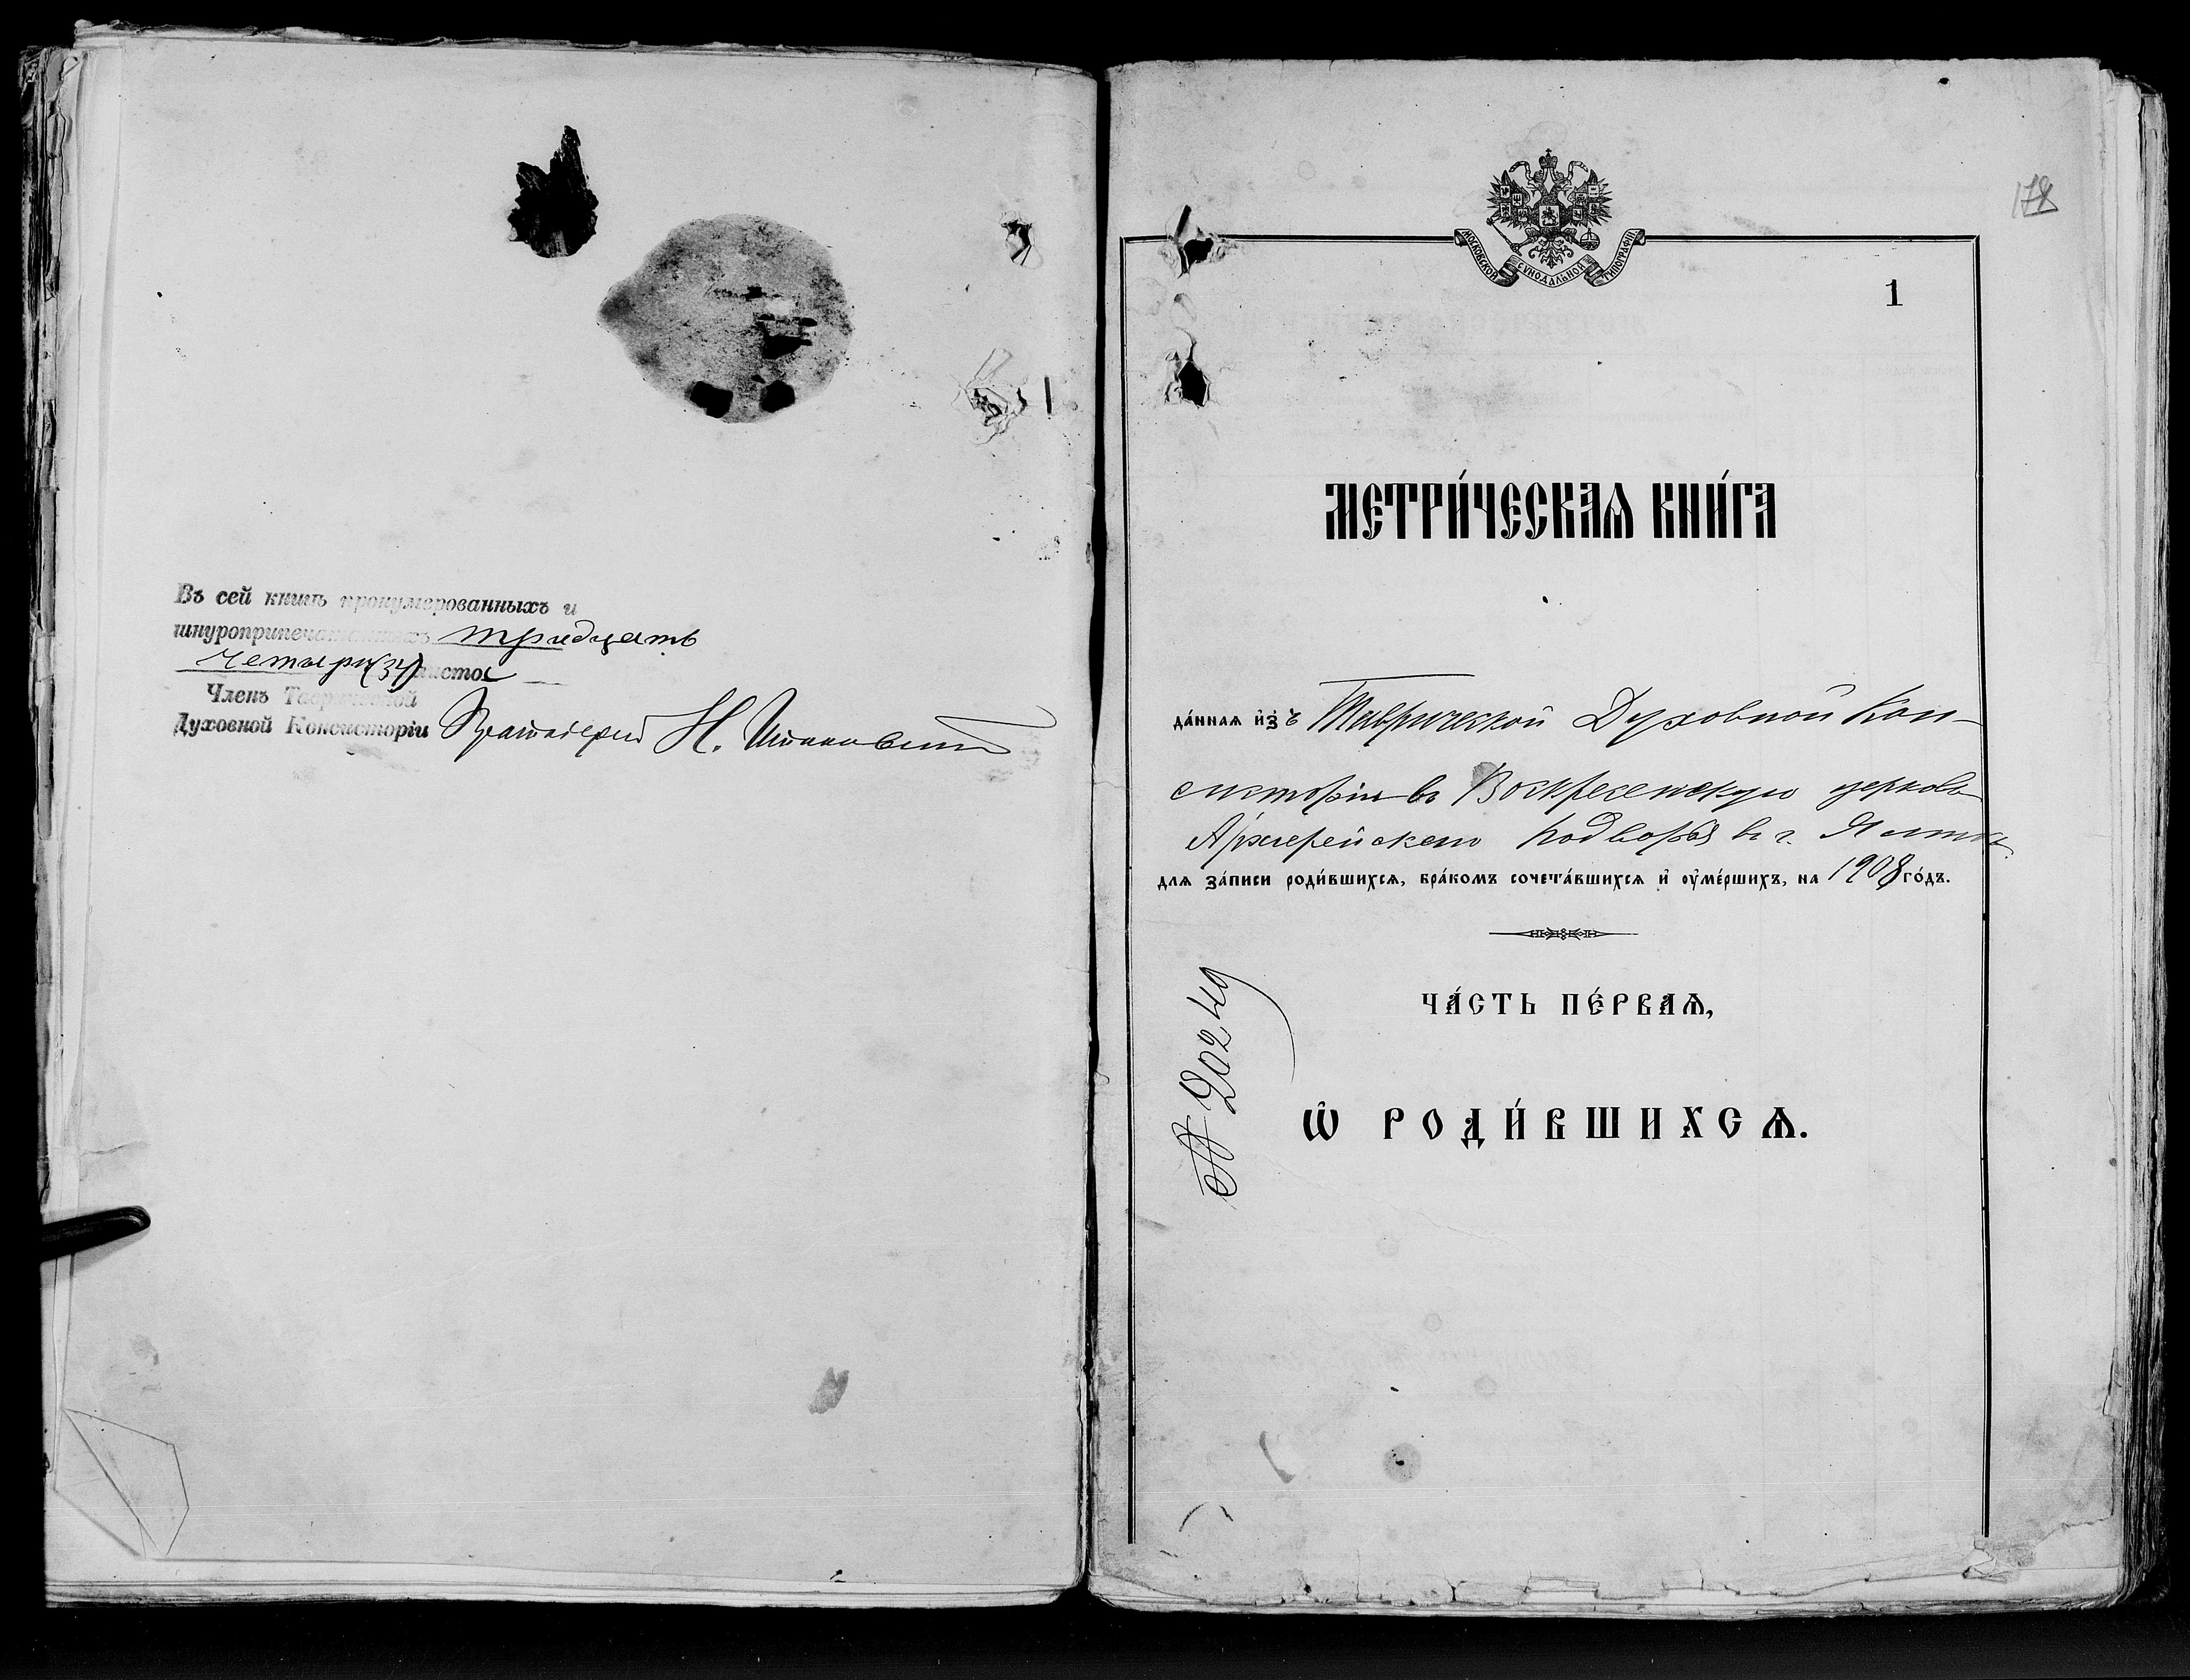 Въ сей книгѣ пронумерованныхъ и
шнуроприпечатанныхъ тридцать
четыре (34) листов
Членъ Таврической
Духовной Консисторіи Протоіерей Н.
178
МОСКОВСКОЙ СѴНОДАЛЬНОЙ ТИПОГРАФІИ
1
МЕТРИ́ЧЕСКАѦ КНИ́ГА
да́ннаѧ и҆зъ Таврической Духовной Кон-
систоріи въ Воскресенскую церковь
Архіерейскаго Подворья въ г. Ялтѣ
длѧ за́писи роди́вшихсѧ, бра́комъ сочета́вшихсѧ и҆ оумершихъ, на 1908 го́дъ.
ЧА́СТЬ ПЕ́РВАѦ,
№ 20249
Ѡ҆ РОДИ́ВШИХСѦ.